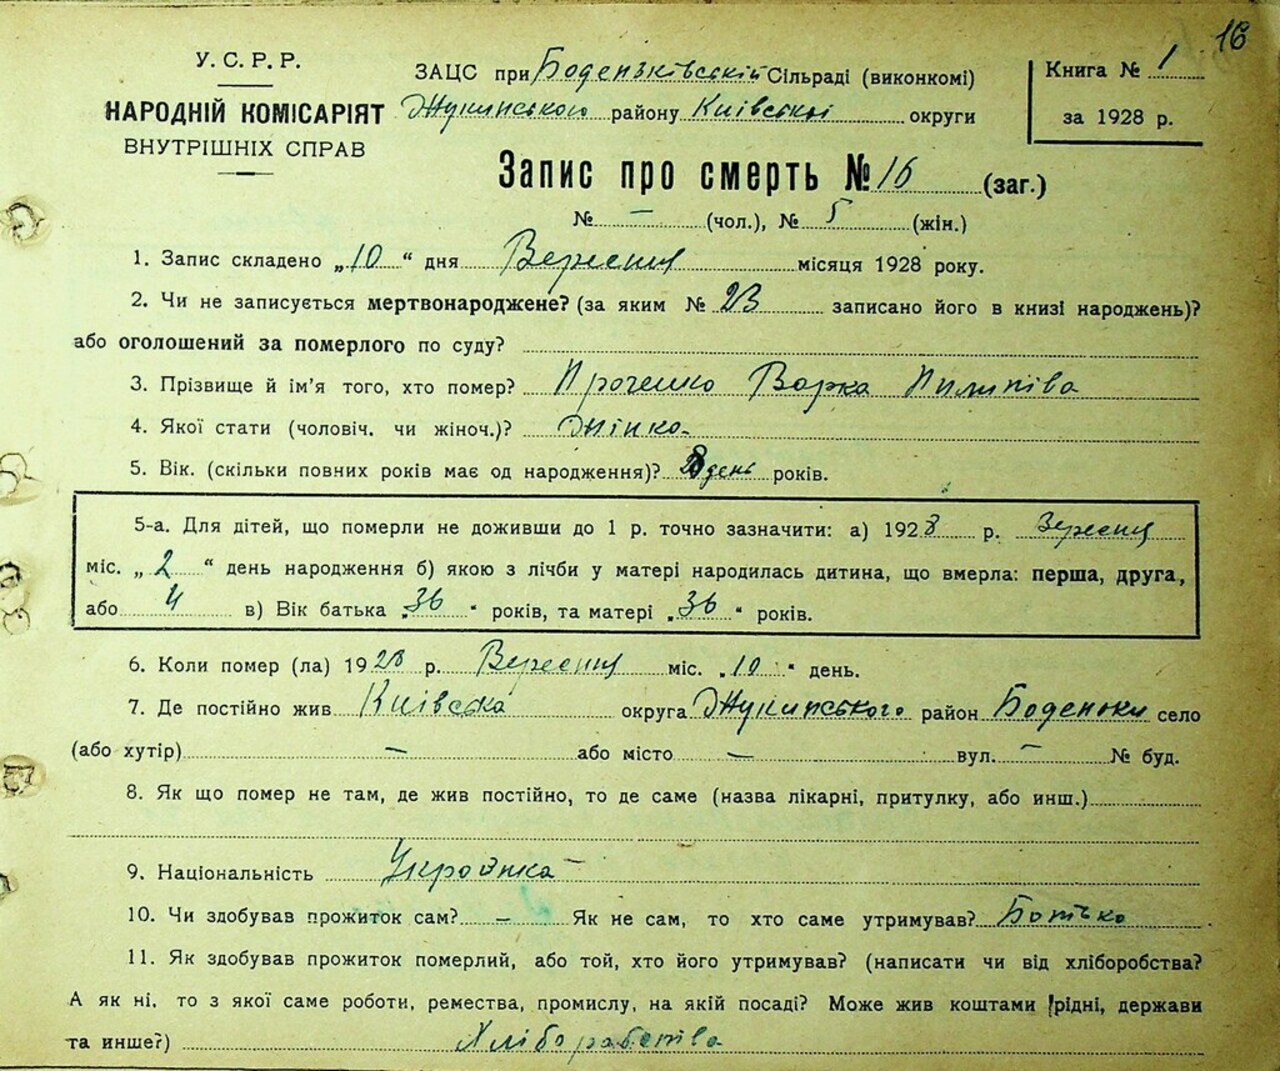 16
У. С. Р. Р.
НАРОДНІЙ КОМІСАРІЯТ
ВНУТРІШНІХ СПРАВ
ЗАЦС при Боденьківській Сільраді (виконкомі)
Жукинського району Київської округи
Книга № 1
за 1928 р.
Запис про смерть № 16 (заг.)
№ — (чол.), № 5 (жін.)
1. Запис складено „10“ дня Вересня місяця 1928 року.
2. Чи не записується мертвонароджене? (за яким № 23 записано його в книзі народжень)?
або оголошений за померлого по суду?
3. Прізвище й ім'я того, хто помер? Проченко Варка Пилипівa
4. Якої стати (чоловіч. чи жіноч.)? Жінка
5. Вік. (скільки повних років має од народження)? 8 день років.
5-а. Для дітей, що померли не доживши до 1 р. точно зазначити: а) 1928 р. Вересня
міс. „2“ день народження б) якою з лічби у матері народилась дитина, що вмерла: перша, друга,
або 4 в) Вік батька „36“ років, та матері „36“ років.
6. Коли помер (ла) 1928 р. Вересня міс. „10“ день.
7. Де постійно жив Київська округа Жукинського район Боденьки село
(або хутір) — або місто — вул. — № буд.
8. Як що помер не там, де жив постійно, то де саме (назва лікарні, притулку, або инш.)
9. Національність Украінка
10. Чи здобував прожиток сам? — Як не сам, то хто саме утримував? Батько
11. Як здобував прожиток померлий, або той, хто його утримував? (написати чи від хліборобства?
А як ні, то з якої саме роботи, ремества, промислу, на якій посаді? Може жив коштами рідні, держави
та инше?) Хліборобство